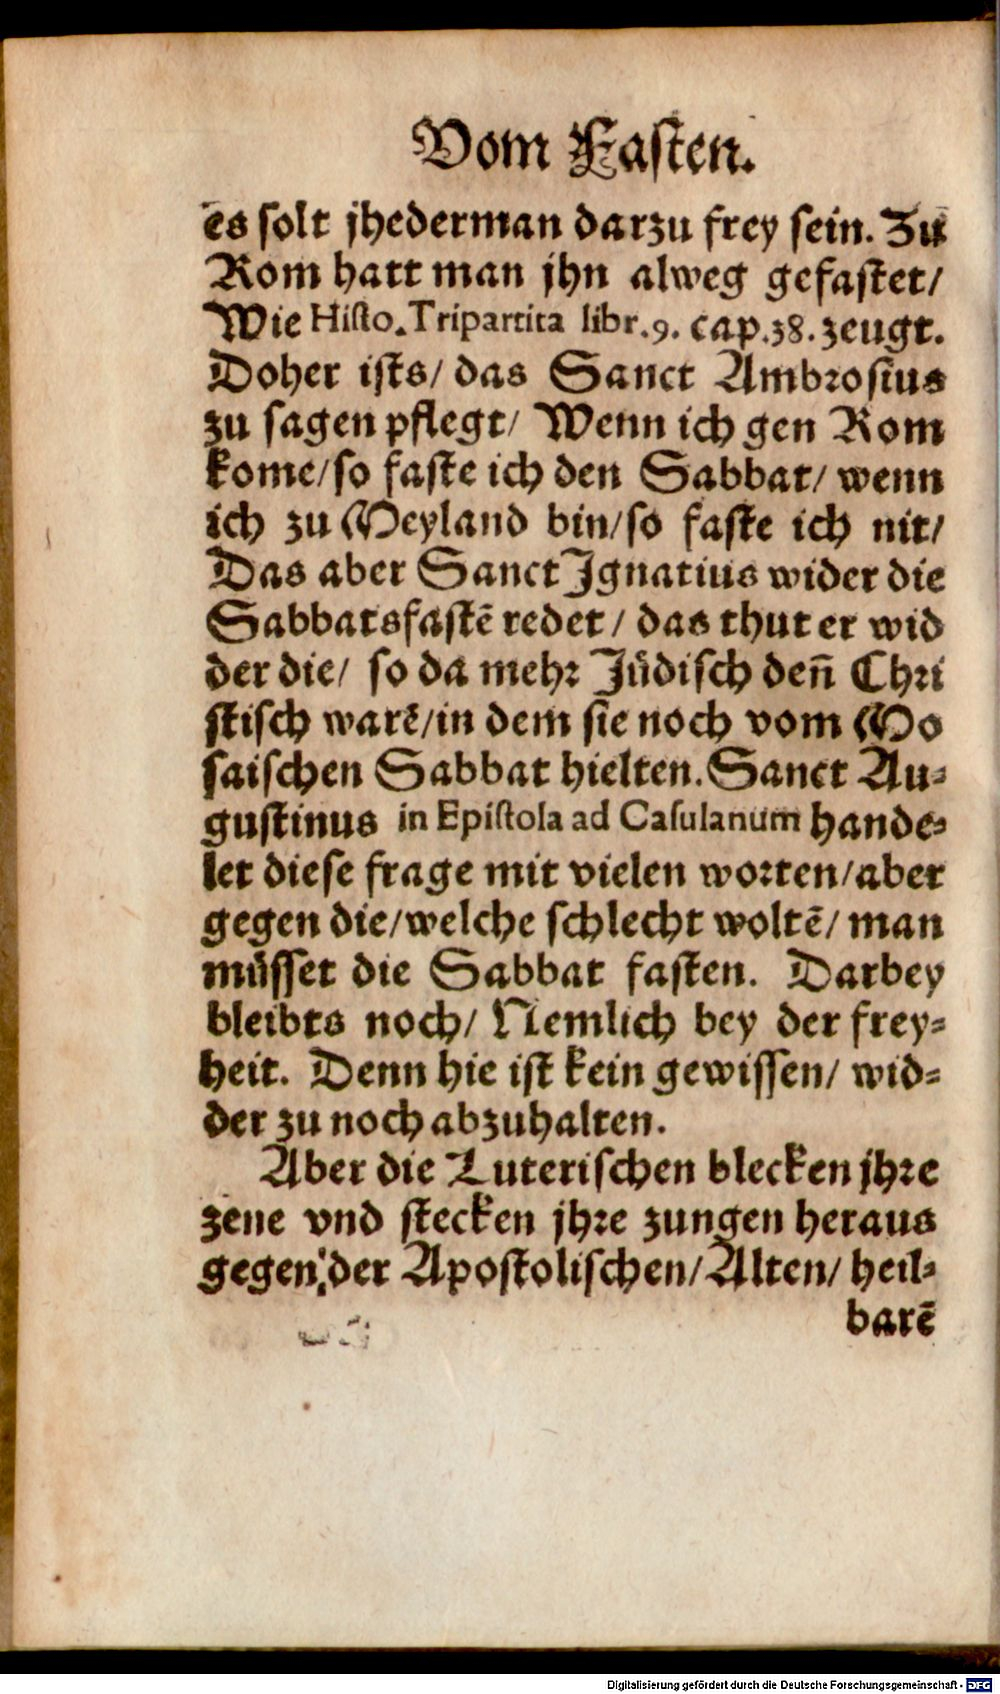 Vom Fasten.
es solt jhederman darzu frey sein. Zu
Rom hatt man jhn alweg gefastet/
Wie Histo. Tripartita libr. 9. cap. 38. zeugt.
Doher ists/ das Sanct Ambrosius
zu sagen pflegt/ Wenn ich gen Rom
kome/ so faste ich den Sabbat/ wenn
ich zu Meyland bin/ so faste ich nit/
Das aber Sanct Ignatius wider die
Sabbatsfastē redet/ das thut er wid
der die/ so da mehr Jüdisch deñ Chri
stisch warē/ in dem sie noch vom Mo
saischen Sabbat hielten. Sanct Au=
gustinus in Epistola ad Casulanum hande=
let diese frage mit vielen worten/ aber
gegen die/ welche schlecht woltē/ man
müsset die Sabbat fasten. Darbey
bleibts noch/ Nemlich bey der frey=
heit. Denn hie ist kein gewissen/ wid=
der zu noch abzuhalten.
Aber die Luterischen blecken jhre
zene vnd stecken jhre zungen heraus
gegen der Apostolischen/ Alten/ heil=
barē
Digitalisierung gefördert durch die Deutsche Forschungsgemeinschaft - DFG